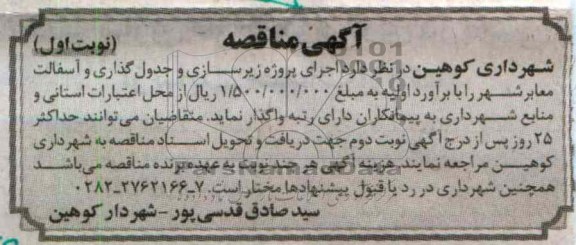 آگهی مناقصه
(نوبت اول)
شهرداری کوهین در نظر دارد اجرای پروژه زیرسازی و جدول گذاری و آسفالت
معابر شهر را با برآورد اولیه به مبلغ ۱/۵۰۰/۰۰۰/۰۰۰ ریال از محل اعتبارات استانی و
منابع شهرداری به پیمانکاران دارای رتبه واگذار نماید. متقاضیان می توانند حداکثر
۲۵ روز پس از درج آگهی نوبت دوم جهت دریافت و تحویل اسناد مناقصه به شهرداری
کوهین مراجعه نمایند. هزینه آگهی هر چند نوبت به عهده برنده مناقصه می باشد
همچنین شهرداری در رد یا قبول پیشنهادها مختار است. ۷-۲۷۶۲۱۶۶-۰۲۸۲
سید صادق قدسی پور - شهردار کوهین